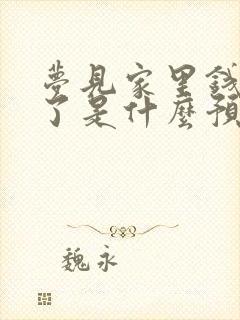 夢見家里錢
了是什麼預
魏永